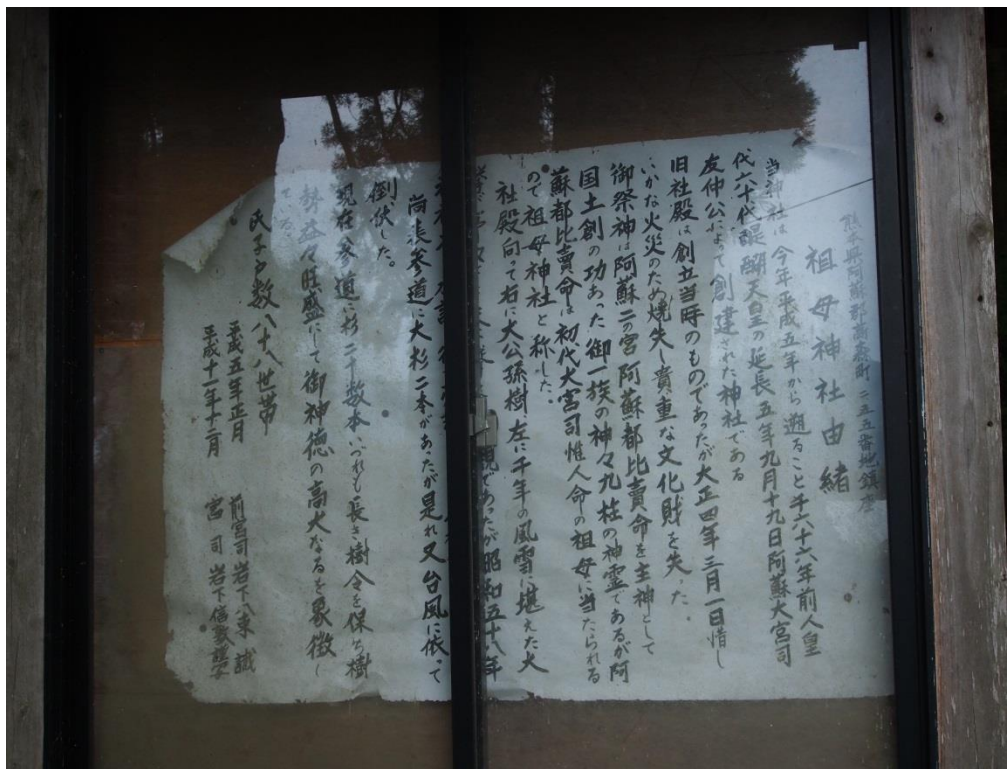 熊本県阿蘇郡高森町 二五五番地鎮座
祖母神社由緒
当神社は今年平成五年から遡ること千六十六年前人皇
代六十代醍醐天皇の延長五年九月十九日阿蘇大宮司
友仲公によって創建された神社である
旧社殿は創立当時のものであったが大正四年三月一日惜し
いかな火災のため焼失し貴重な文化財を失った
御祭神は阿蘇二の宮阿蘇都比売命を主神として
国土創の功あった御一族の神々九柱の神霊であるが阿
蘇都比売命は初代大宮司惟人命の祖母に当たられる
ので祖母神社と称した。
社殿向って右に大公孫樹左に千年の風雪に堪えた大
観であったが昭和五十八年
尚表参道に大杉二本があったが是れ又台風に依って
倒伏した。
現在参道に杉二十数本いづれも長き樹令を保ち樹
勢益々旺盛にして御神徳の高大なるを象徴し
ている。
氏子戸数八十八世帯
平成五年正月 前宮司 岩下八束 識
平成十一年十二月 宮司 岩下信